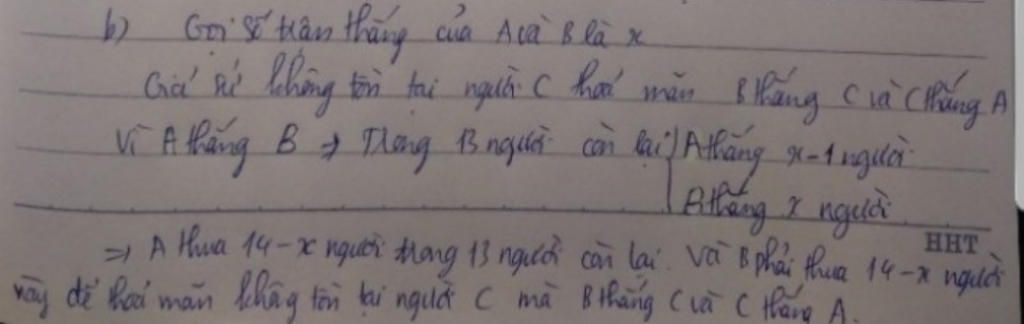 b) Gọi số trận thắng của A và B là x
Giả sử không tồn tại người C thoả mãn B thắng C và C thắng A
Vì A thắng B ⇒ Trong 13 người còn lại { A thắng x-1 người
B thắng x người
HHT
⇒ A thua 14-x người trong 13 người còn lại. Và B phải thua 14-x người
này để thoả mãn không tồn tại người C mà B thắng C và C thắng A.